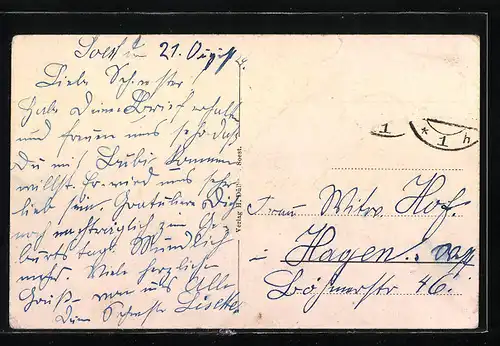 Soest d 21. August
Liebe Schwester
Habe Deinen Brief erhalten
und freuen uns sehr daß
Du mit kommen
willst. Es wird uns sehr
lieb sein. Gratuliere Dich
noch nachträglich zum Ge-
burtstage Mündlich
mehr. Viele herzliche
Grüße von uns Alle
Deine Schwester Lisette
Verlag H. Soest.
1
* 1 h
Frau Witw. Hof.
Hagen.
Böhmerstr 46.